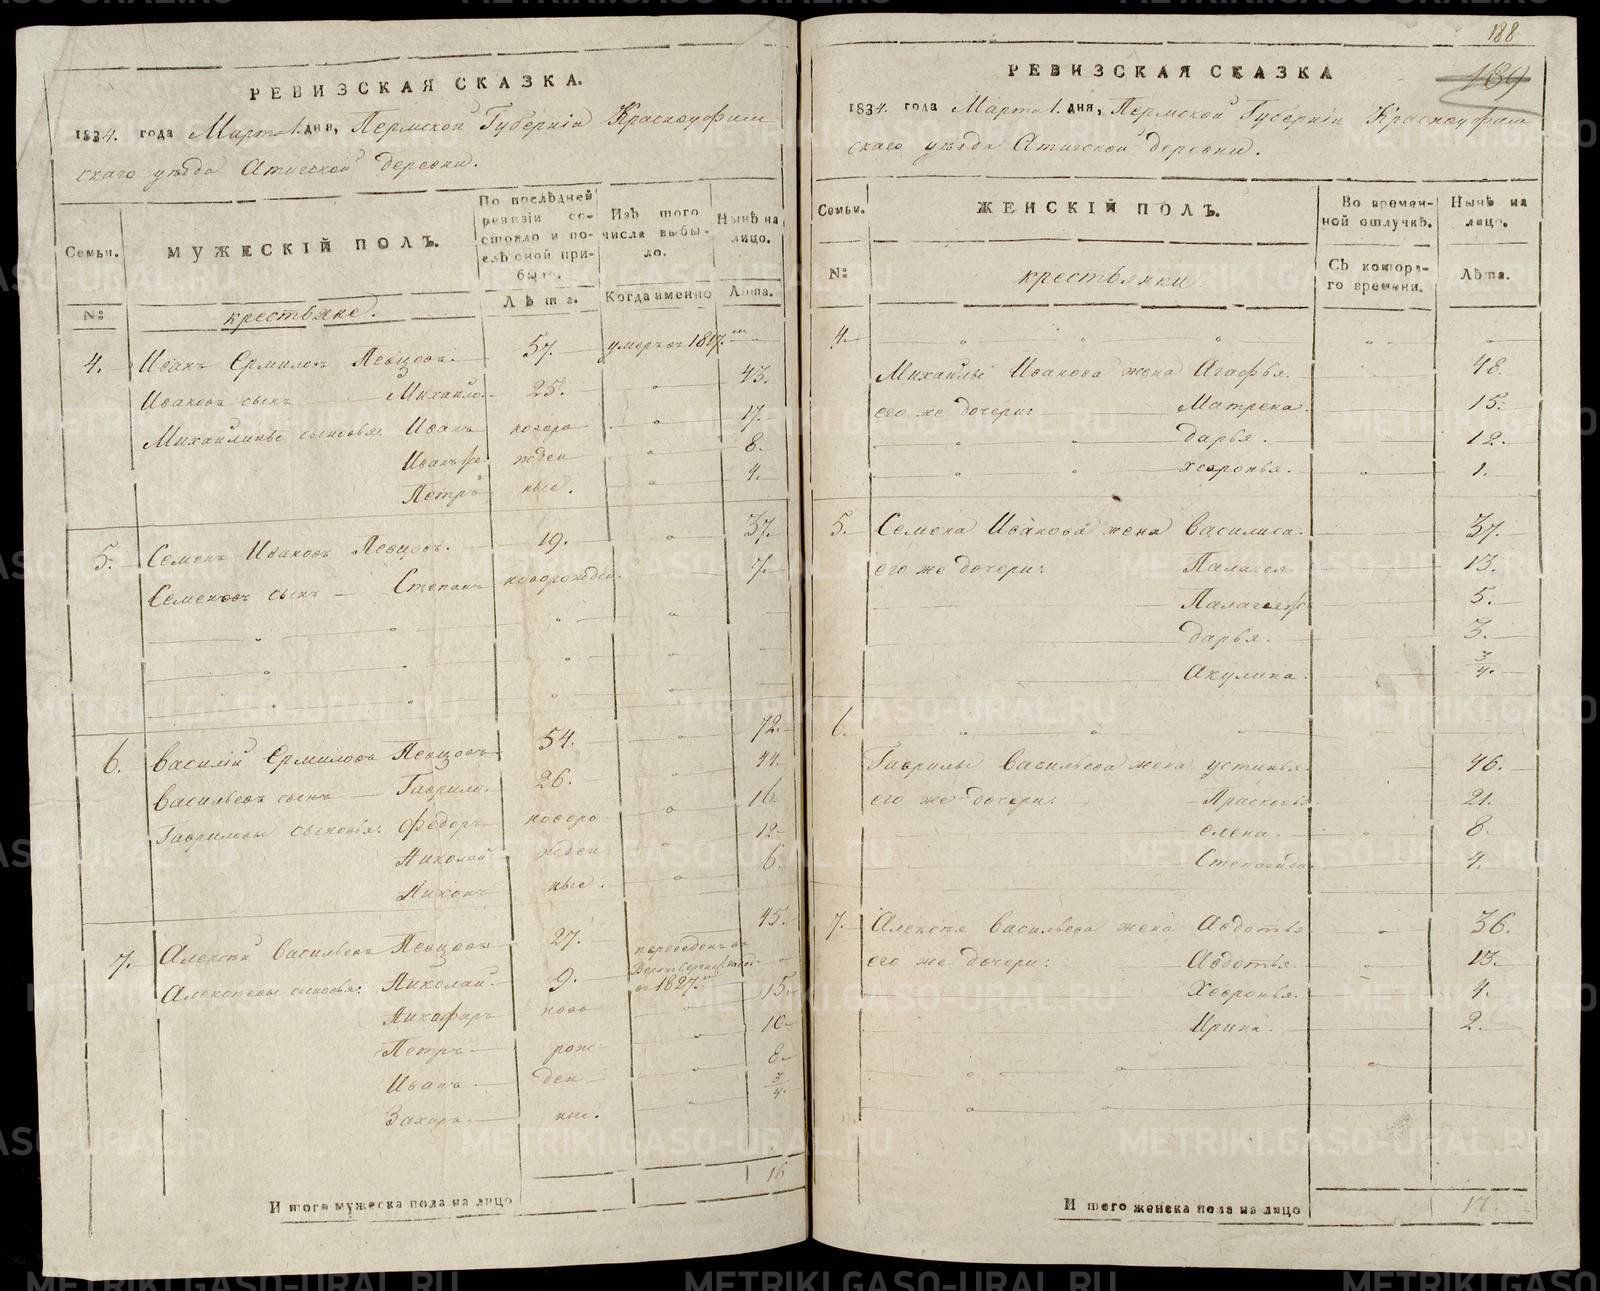 РЕВИЗСКАЯ СКАЗКА.
1834. года Марта 1. дня, Пермской Губерніи Красноуфим
скаго уѣзда Атигской деревни.
Семьи. МУЖЕСКІЙ ПОЛЪ. По послѣдней ревизіи состояло и послѣ оной прибыло. Изъ того числа выбыло. Нынѣ на лицо.
№ крестьяне. Лѣта. Когда именно Лѣта.
4. Иванъ Ермиловъ Певцовъ 57. умеръ въ 1817.
Ивановъ сынъ Михайло. 25. 43.
Михайлины сыновья: Иванъ новоро 17.
Иванъ же жден 8.
Петръ ные. 4.
5. Семенъ Ивановъ Певцовъ. 19. 37.
Семеновъ сынъ Степанъ новорожден. 7.
6. Василій Ермиловъ Певцовъ 54. 72.
Васильевъ сынъ Гаврило. 26. 44.
Гавриловы сыновія: Федоръ новоро 16.
Николай жден 12.
Никонъ ные. 6.
7. Алексей Васильевъ Певцовъ 27. 45.
Алексеевы сыновья: Николай. 9. переведенъ въ
въ 1827.
Никифаръ ново 15.
Петръ рож 10.
Иванъ ден 8.
Захаръ. ные. 3/4.
И того мужеска пола на лицо 16
188
189
РЕВИЗСКАЯ СКАЗКА
1834. года Марта 1. дня, Пермской Губерніи Красноуфим
скаго уѣзда Атигской деревни.
Семьи. ЖЕНСКІЙ ПОЛЪ. Во временной отлучкѣ. Нынѣ на лицо.
№ крестьянки Съ котораго времени. Лѣта.
4.
Михайлы Иванова жена Агафья. 48.
его же дочери: Матрена. 15.
дарья. 12.
хевронья. 1.
5. Семена Иванова жена Василиса. 37.
его же дочери: Палагея 13.
Палагея же 5.
дарья. 3.
Акулина. 3/4.
6.
Гаврилы Васильева жена устинья 46.
его же дочери: Прасковья. 21.
елена. 8.
Степанида. 4.
7. Алексея Васильева жена Авдотья 36.
его же дочери: Авдотья. 13.
Хевронья. 4.
Ирина. 2.
И того женска пола на лицо 17.
METRIKI.GASO-URAL.RU